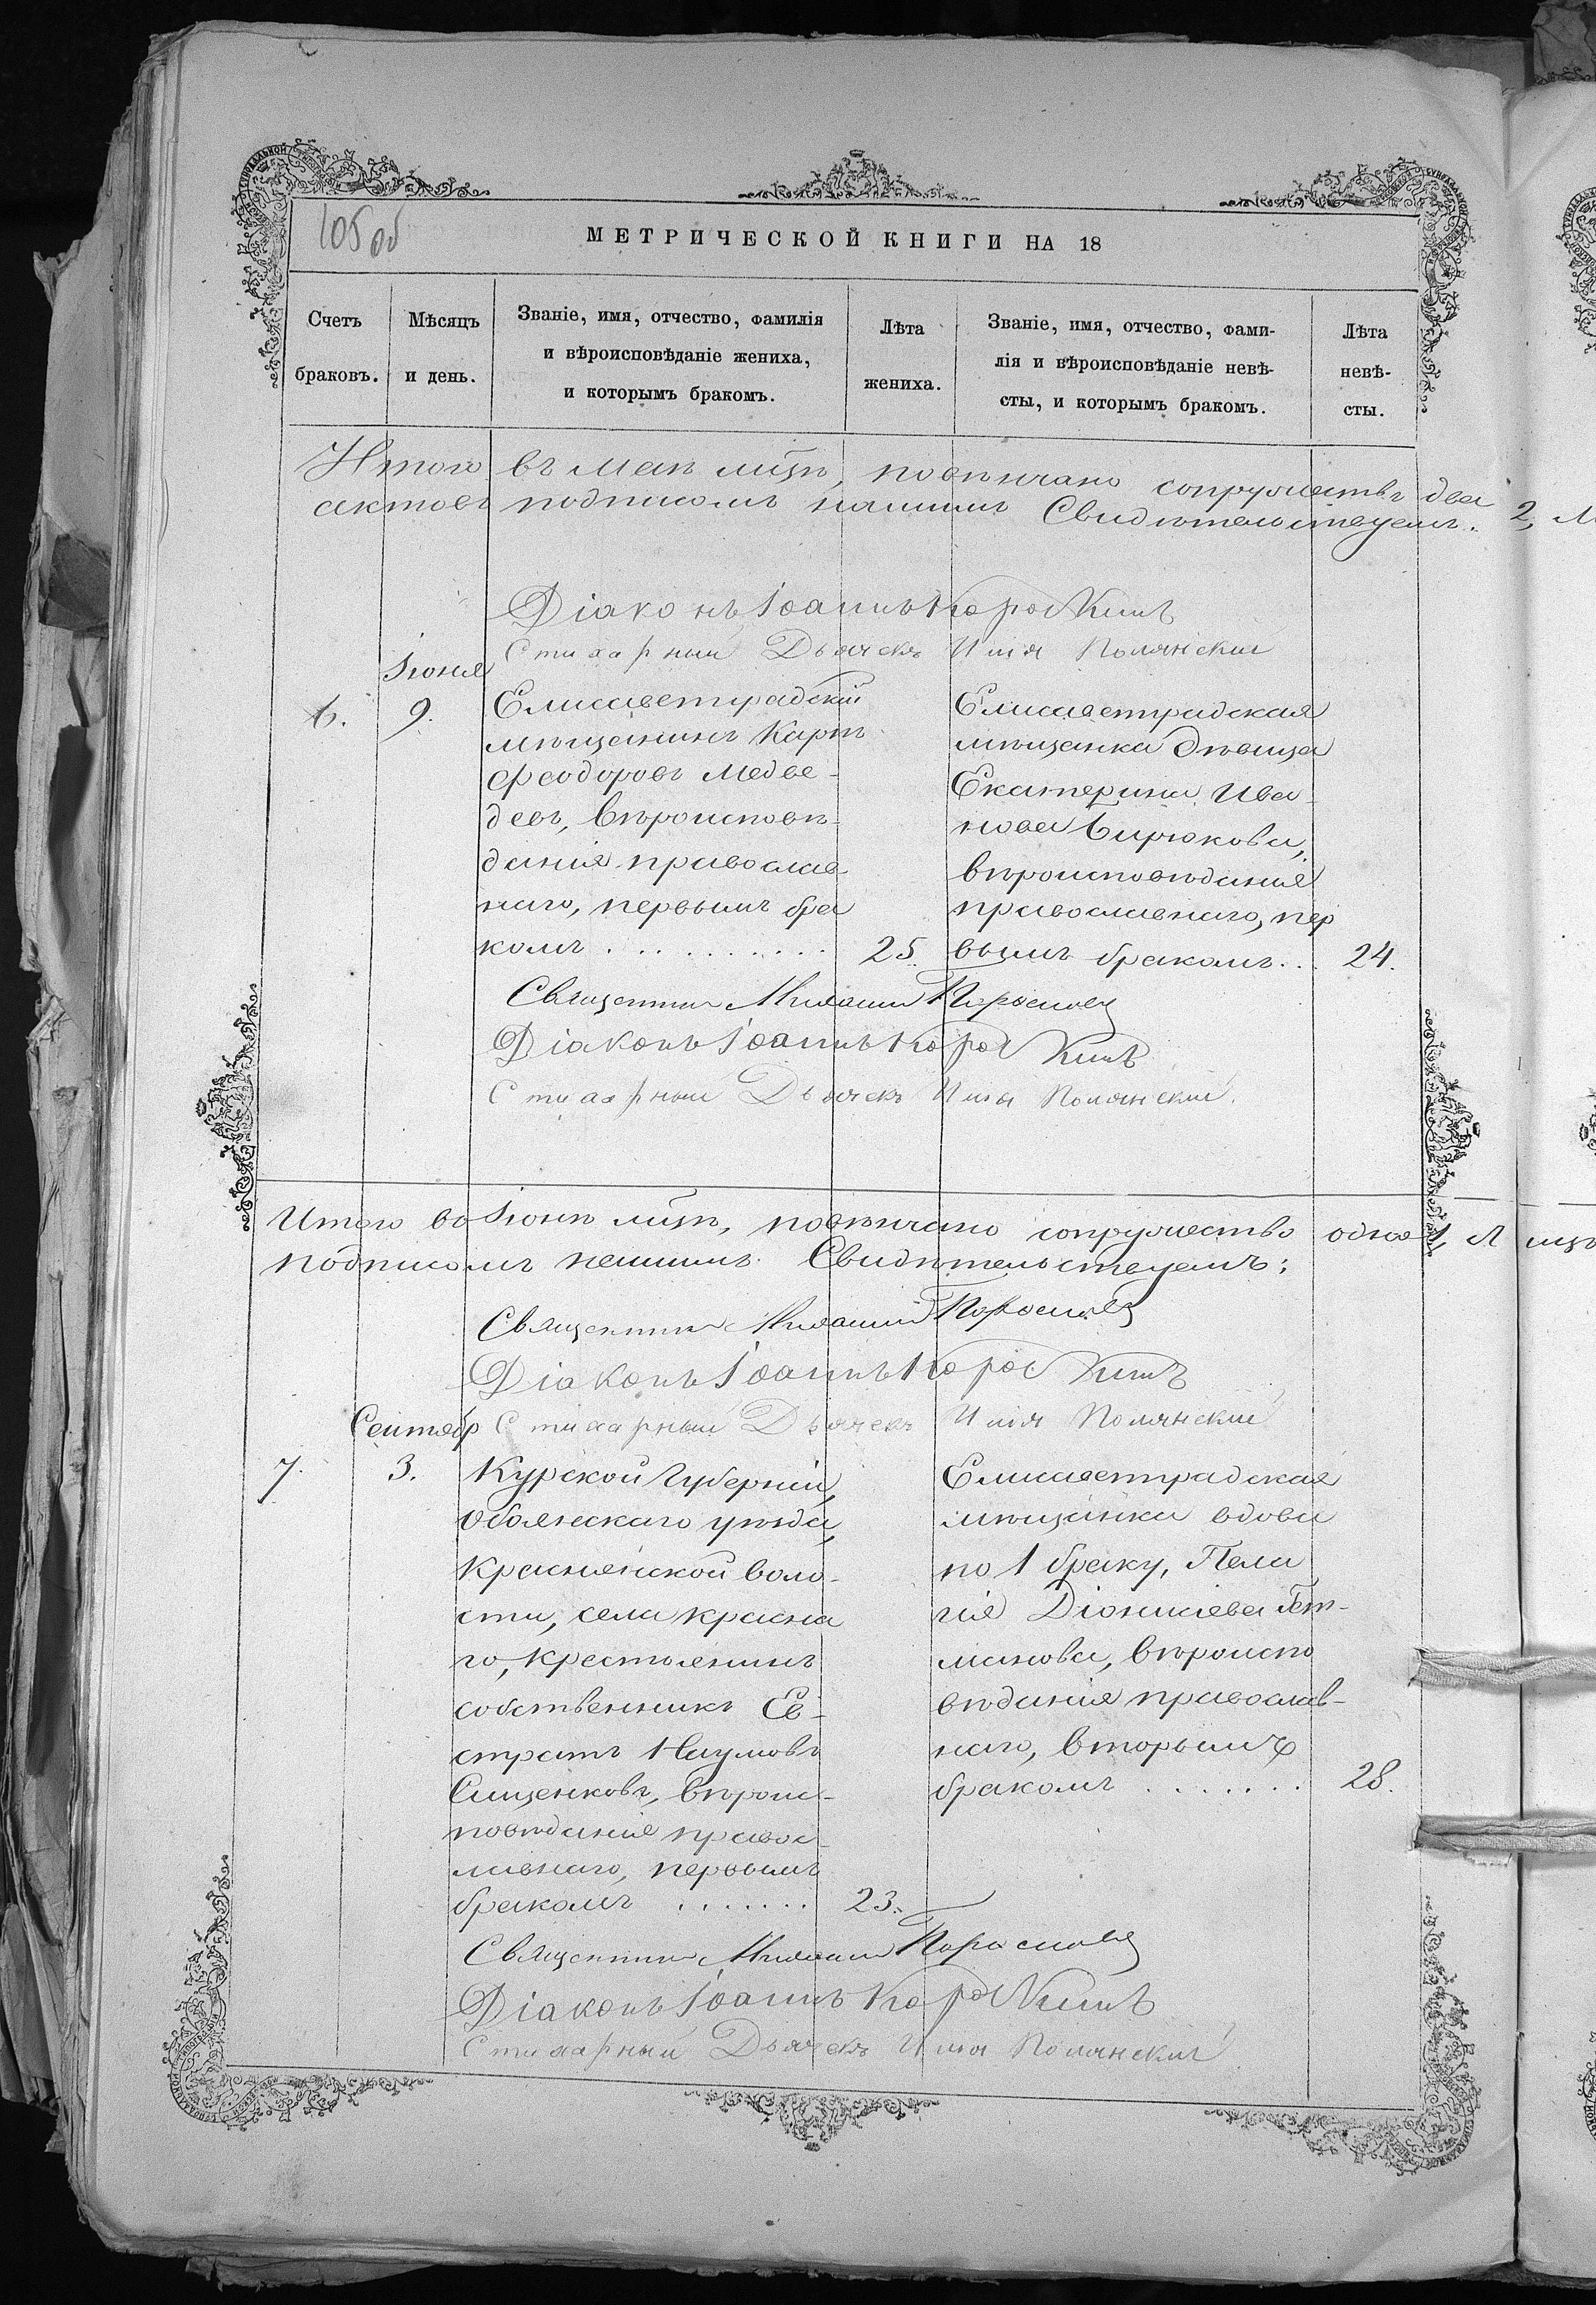 105 об
МЕТРИЧЕСКОЙ КНИГИ НА 18
Счетъ браковъ.
Мѣсяцъ и день.
Званіе, имя, отчество, фамилія
и вѣроисповѣданіе жениха,
и которымъ бракомъ.
Лѣта
жениха.
Званіе, имя, отчество, фами-
лія и вѣроисповѣданіе невѣ-
сты, и которымъ бракомъ.
Лѣта
невѣ-
сты.
Итого въ маѣ мцѣ, повѣнчано сопружествъ два 2,
актовъ подписомъ нашимъ Свидѣтельствуемъ.
Діаконъ Іоаннъ
Стихарный Дьячекъ Илія Полянскій
Іюня
6. 9.
Елисаветградскій
мѣщанинъ Карпъ
Феодоровъ Медве-
девъ, вѣроисповѣ-
данія православ-
наго, первымъ бра
комъ . . . . . . . . . . 25.
Елисаветградская
мѣщанка дѣвица
Екатерина Ива-
нова Бирюкова,
вѣроисповѣданія
православнаго, пер
вымъ бракомъ . . . 24.
Священник
Діаконъ Іоаннъ
Стихарный Дьячекъ Илія Полянскій.
Итого во Іюнѣ мцѣ, повѣнчано сопружество одно 1,
подписомъ нашимъ Свидѣтельствуемъ:
Священник
Діаконъ Іоаннъ
Стихарный Дьячекъ Илія Полянскій
Сентябр
7. 3.
Курской Губерніи,
Обоянскаго уѣзда,
Краснянской воло-
сти, села Красна
го, крестьянинъ
собственникъ Ев-
стратъ Наумовъ
Сищенковъ, вѣроис-
повѣданія правос-
лавнаго, первымъ
бракомъ . . . . . . . 23.
Елисаветградская
мѣщанка вдова
по 1 браку, Пела
гія Діонисіева Гет-
манова, вѣроиспо
вѣданія православ-
наго, вторымъ
бракомъ . . . . . . . 28.
Священник
Діаконъ Іоаннъ
Стихарный Дьячекъ Илія Полянскій